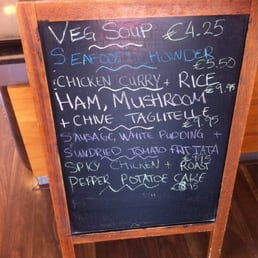 VEG SOUP €4.25
SEAFOOD CHOWDER
€5.50
CHICKEN CURRY + RICE
€9.95
HAM, MUSHROOM
+ CHIVE TAGLITELLE
€9.95
SAUSAGE, WHITE PUDDING +
SUNDRIED TOMATO FRITATA
€9.95
SPICY CHICKEN + ROAST
PEPPER POTATOE CAKE
€8.95